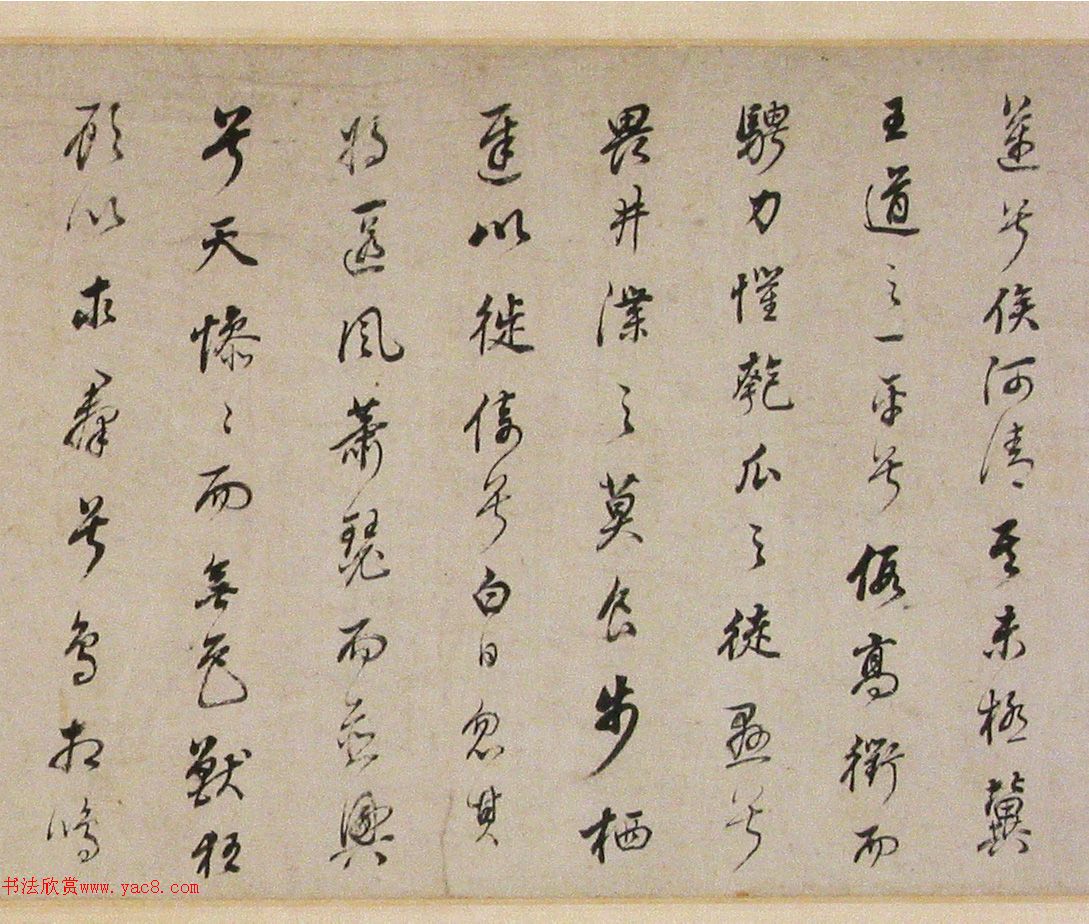 邁兮俟河清其未極冀
王道之一平兮假高衢而
騁力懼匏瓜之徒懸兮
畏井渫之莫食步栖
遲以徙倚兮白日忽其
將匿風蕭瑟而並興
兮天慘〻而無色獸狂
顧以求羣兮鳥相鳴
书法欣赏www.yac8.com